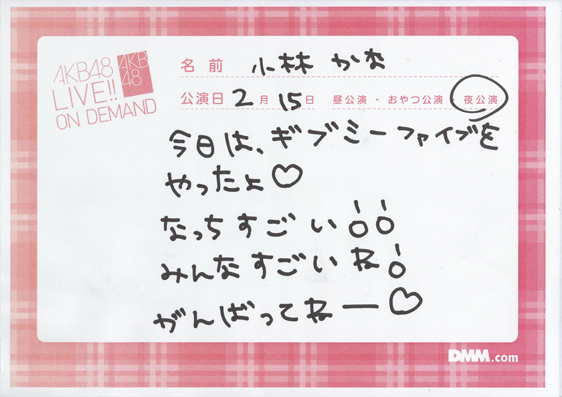 AKB48
LIVE!!
ON DEMAND
AKB
48
名前 小林 かな
公演日 2月 15日 昼公演・おやつ公演・夜公演
今日は、ギブミーファイブを
やったよ♡
なっちすごい!!
みんなすごいね!
がんばってねー♡
DMM.com